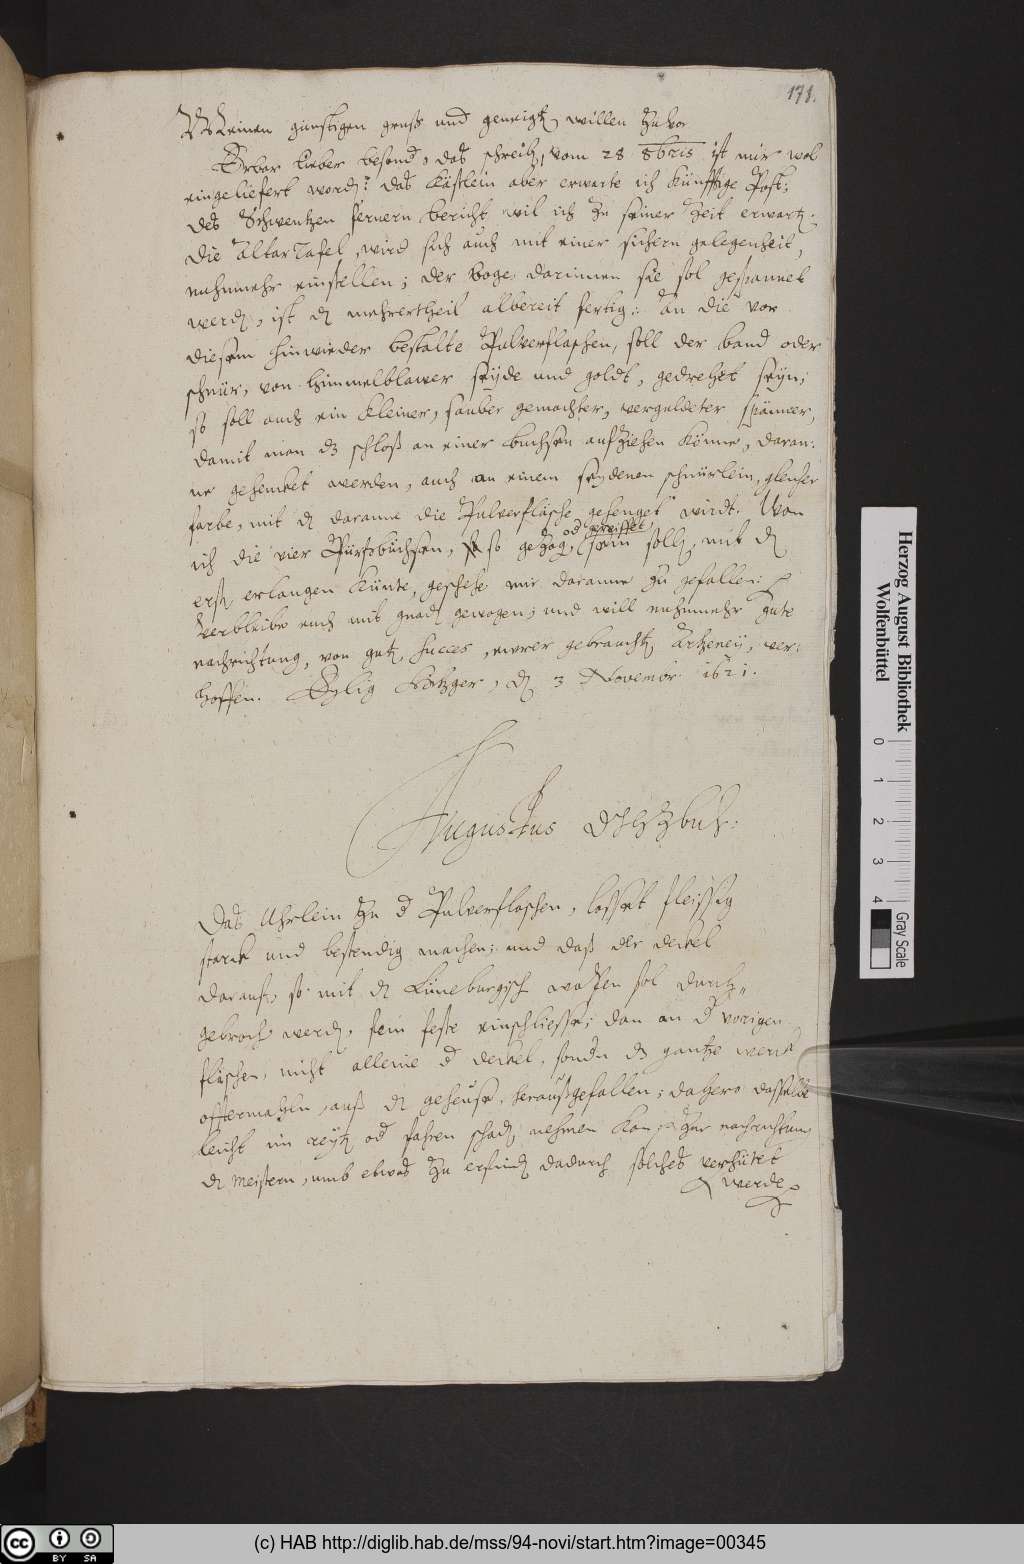 178.
Meinen günstigen gruß und geneigtē willen Zuvor
Erbar lieber besond, das schreibē, vom 28 8bris ist mir wol
eingeliefert wordē: das Kästlein aber erwarte ich künfftige Post:
des Schwentzen fernern bericht wil ich Zu seiner Zeit erwartē.
Die Altar Tafel, wird sich auch mit einer sichern gelegenheit,
nuhnmehr einstellen; der boge, darinnen sie sol gespannet
werdē, ist dē mehrertheil albereit fertig: An die vor
diesem hinwieder bestalte Pulverflaschen, soll der band oder
schnür, von himmelblawer seyde und goldt, gedrehet seyn;
so soll auch ein kleiner, sauber gemachter, vergüldeter spänner,
damit man dz schloß an einer buchsen auffziehen könne, daran:
ne gehencket werden, auch an einem seydenen schnürlein, gleicher
farbe, mit dē daranne die Pulverflasche gehenget wirdt. Wan
ich die vier Pürschbüchsen, so gezogē, od gereiffet, sein sollē, mit dē
erstē erlangen künte, geschehe mir daranne zu gefallen:
Verbleibe euch mit gnadē gewogen; und will nuhnmehr gute
nachrichtung, von gutē succes, ewrer gebrauchtē Artzeney, ver:
hoffen. Eylig Hitzger, dē 3 Novembr. 1621.
Augustus DJHZbuL:
Das Uhrlein zu d Pulverflaschen, lasset fleissig
starck und bestendig machen; und daß der deckel
darauf, so mit dē Lüneburgisch wapen sol durch=
gebrochē werdē, fein feste einschliesse; dan an d vorigen
flaschen, nicht alleine d deckel, sondn dz gantze werck
offtermahln, auß dē geheuse, heraußgefallen; dahero dasselbe
leicht im reytē od fahren schadē nehmen kan; Zur nachrichtung
dē meistern, umb etwas zu erfindē dadurch solches verhütet
werde
Herzog August Bibliothek
Wolfenbüttel
0 1 2 3 4
Gray Scale
cc BY SA
(c) HAB http://diglib.hab.de/mss/94-novi/start.htm?image=00345